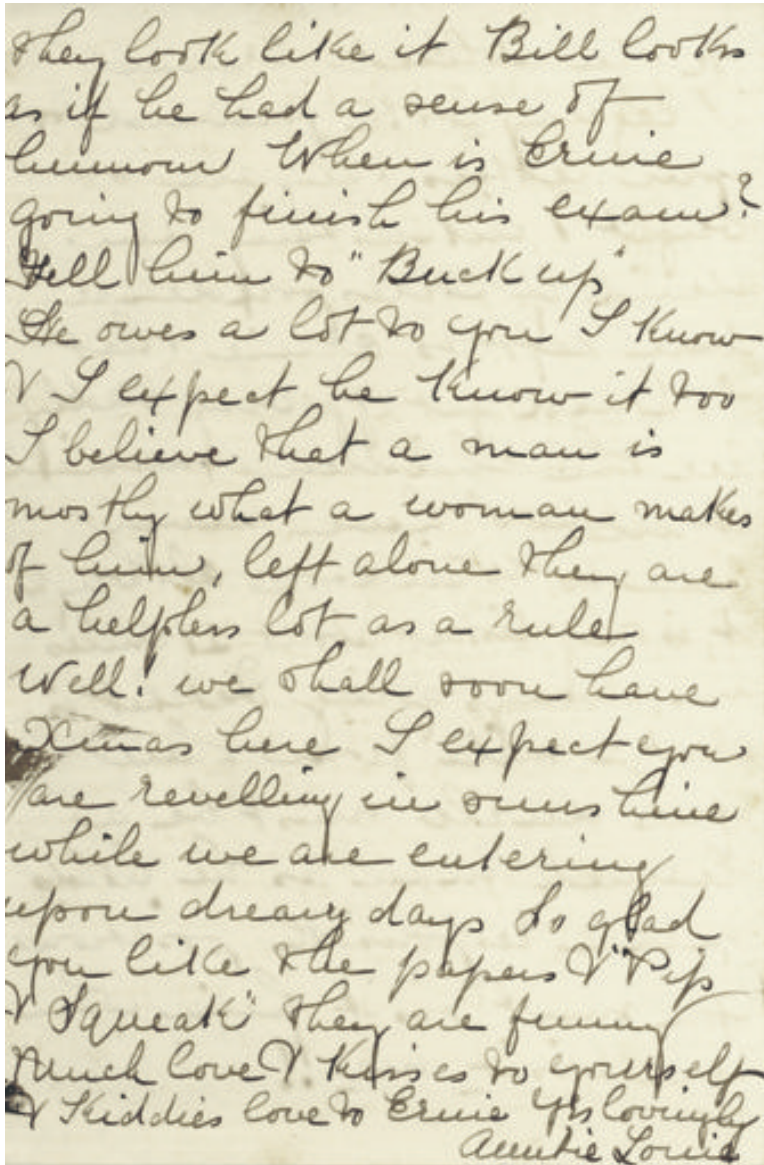 they look like it Bill looks
as if he had a sense of
humour When is Ernie
going to finish his exam?
Tell him to "Buck up"
He owes a lot to you I know
& I expect he know it too
I believe that a man is
mostly what a woman makes
of him, left alone they are
a helpless lot as a rule
Well! we shall soon have
Xmas here I expect you
are revelling in sunshine
while we are entering
upon dreary days So glad
you like the papers & "Pip
& Squeak" they are funny
Much love & kisses to yourself
& Kiddies love to Ernie Yrs lovingly
Auntie Louie